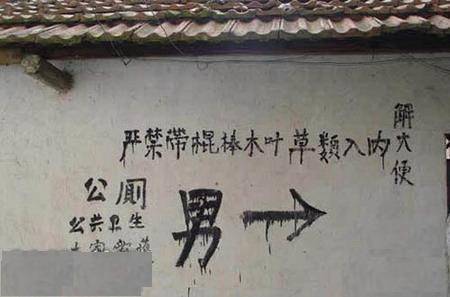 严禁带棍棒木叶草類入内
解大便
公厕
公共卫生
男